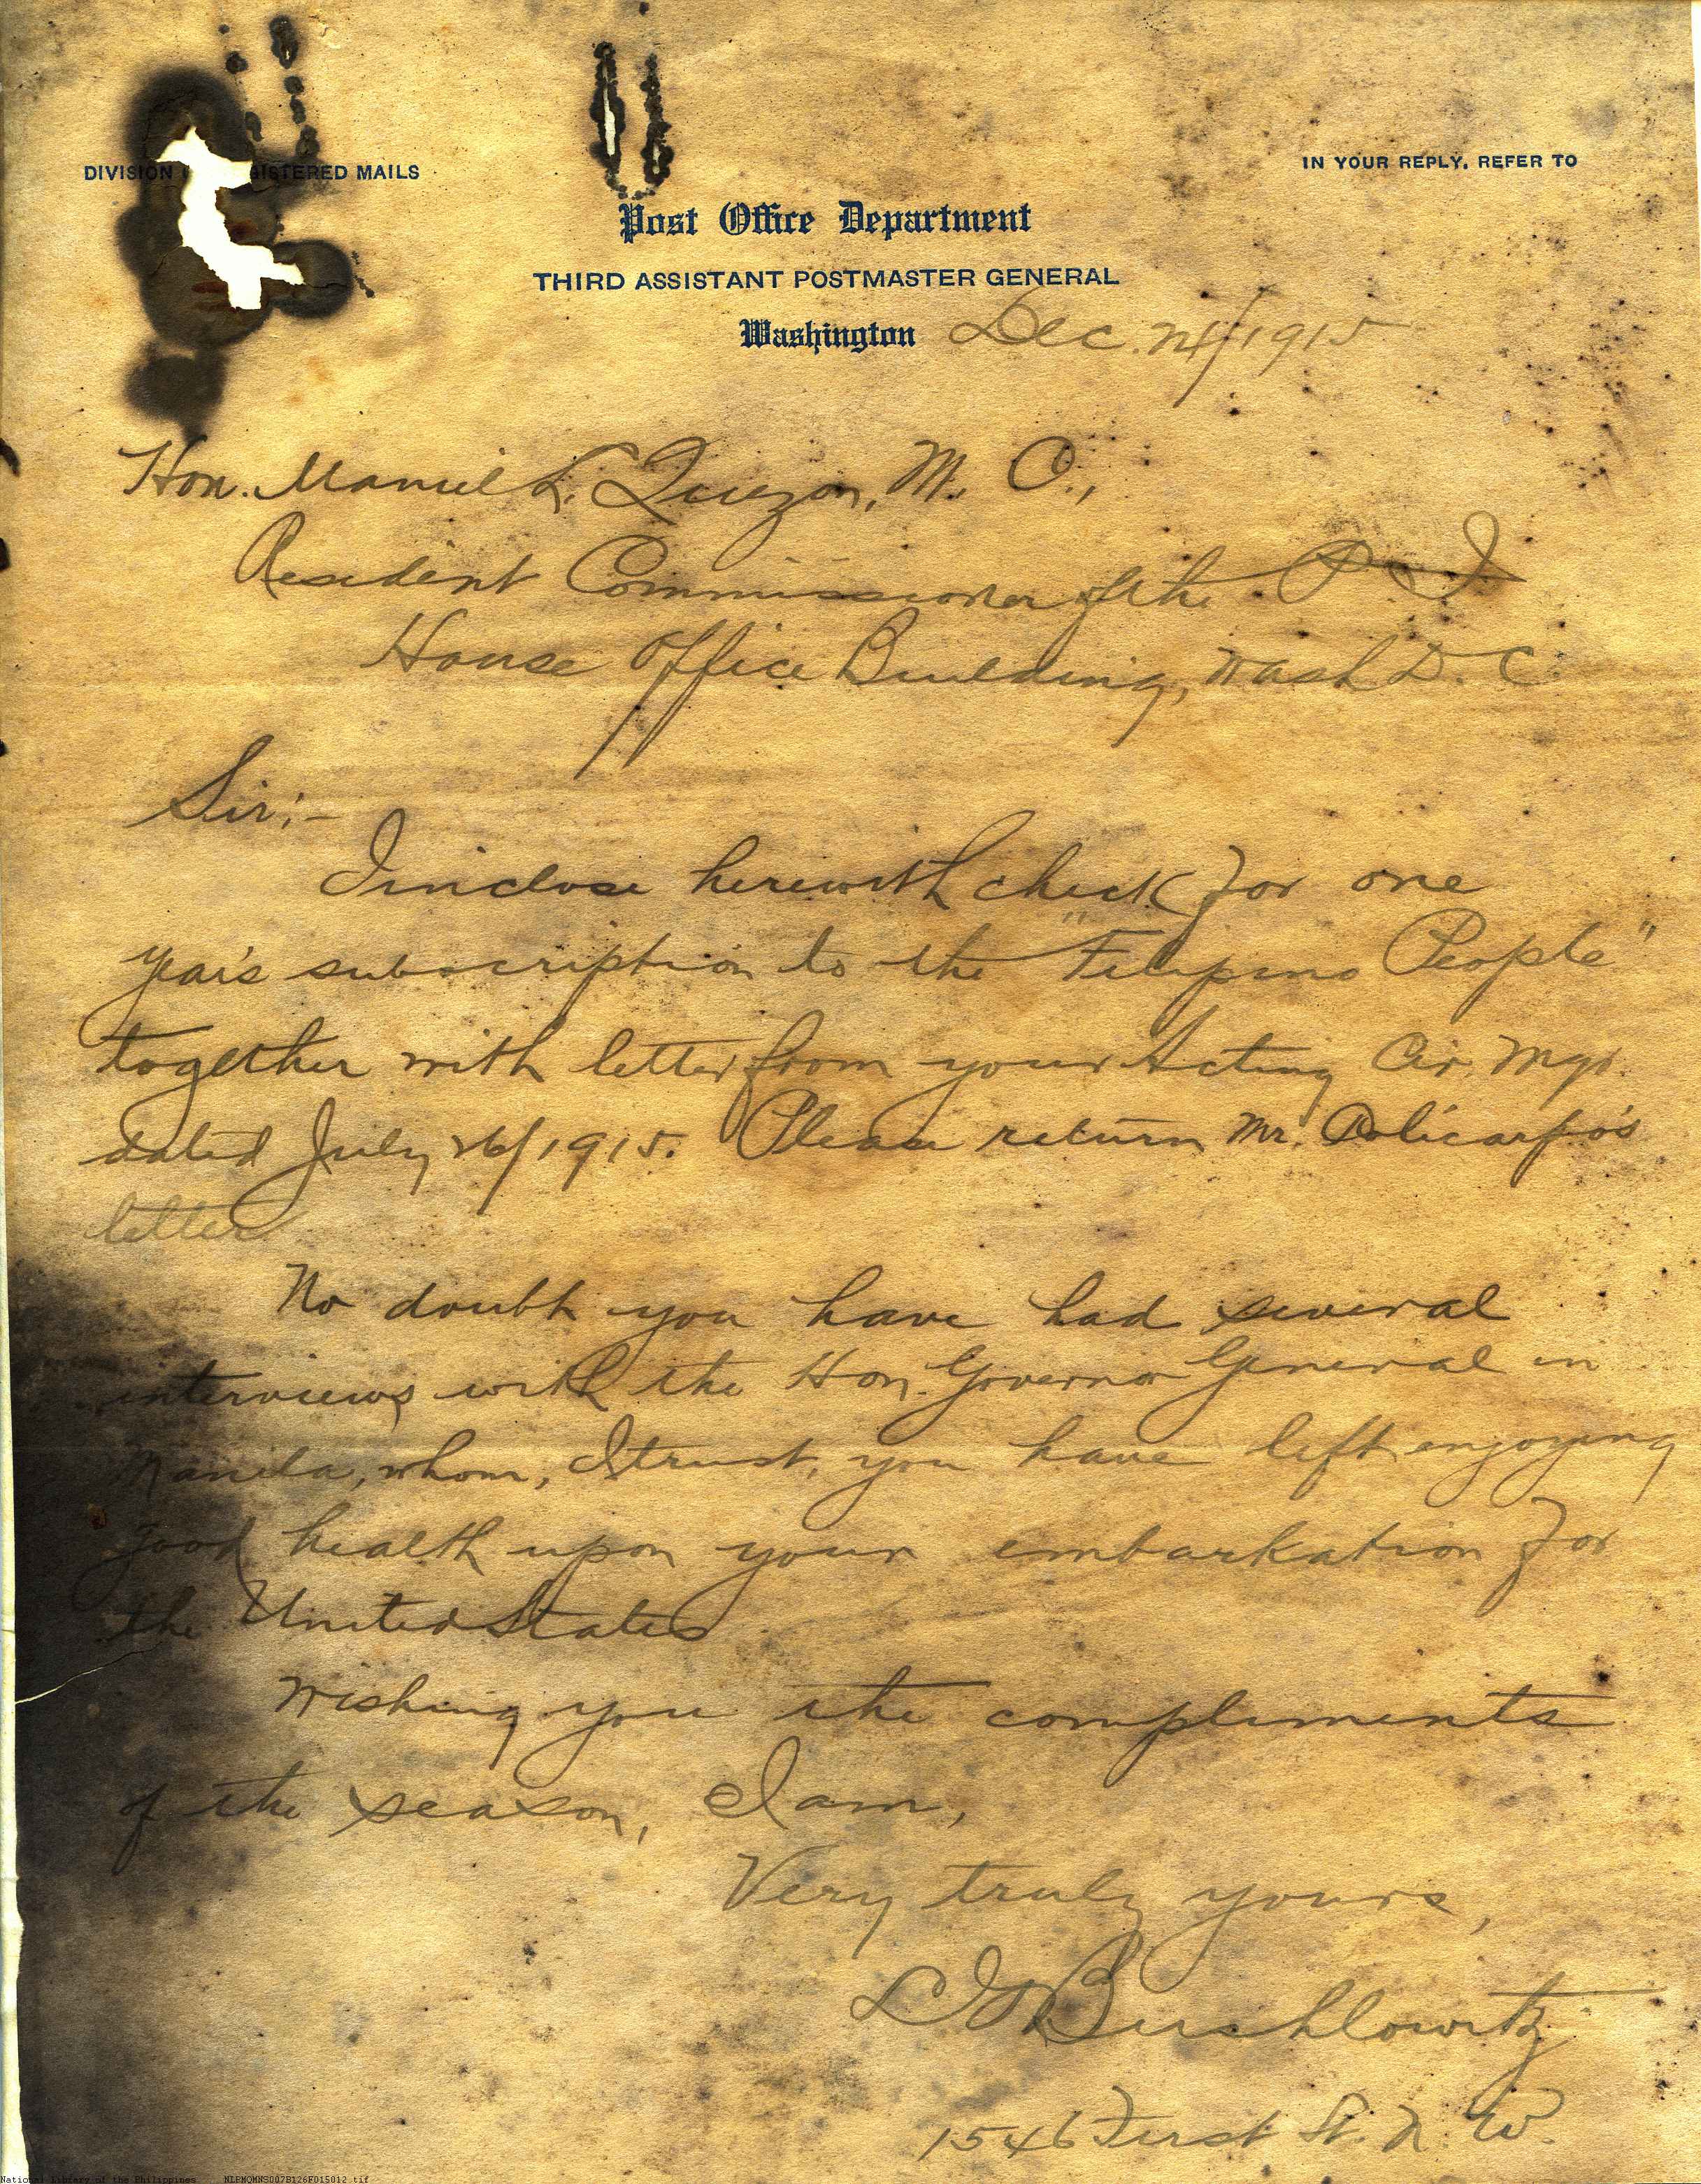 DIVISION GISTERED MAILS
IN YOUR REPLY, REFER TO
Post Office Department
THIRD ASSISTANT POSTMASTER GENERAL
Washington Dec. 24/1915
Hon. Manuel L. Quezon, M. C.,
Resident Commissioner of the P. I.
House Office Building, Wash D. C.
Sir:-
I inclose herewith check for one
year's subscription to the "Filipino People"
together with letter from your Acting Cir. Mgr.
dated July 26/1915. Please return Mr. Policarpo's
letter
No doubt you have had several
interviews with the Hon. Governor General in
Manila, whom, I trust, you have left enjoying
good health upon your embarkation for
the United States
Wishing you the compliments
of the season, I am,
Very truly yours,
Bushlowitz
1546 First St. N. W.
National Library of the Philippines NLPMQMNS007B126F015012.tif